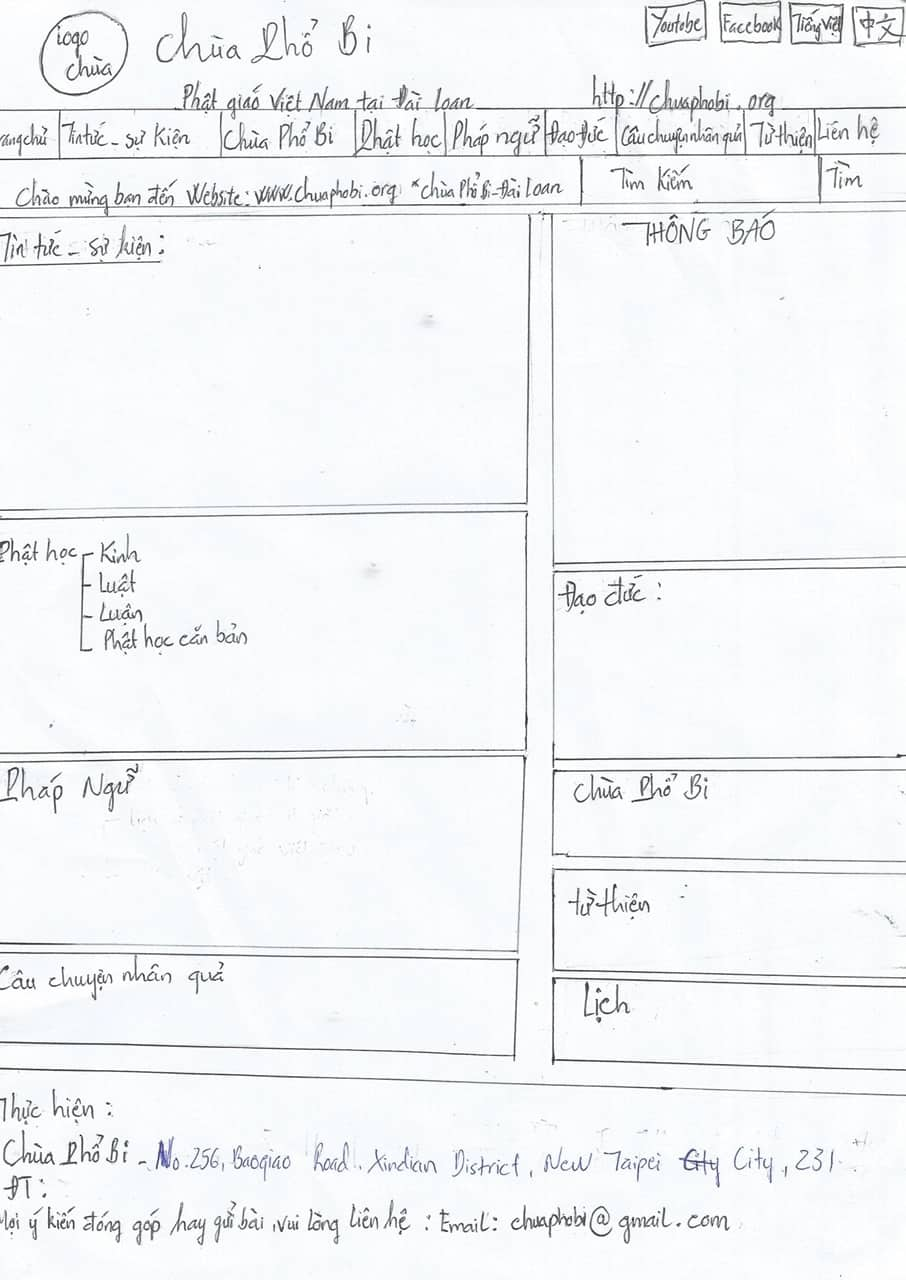 logo
chùa
Chùa Phổ Bi
Youtube
Facebook
Tiếng Việt
中文
Phật giáo Việt Nam tại Đài Loan
http://chuaphobi.org
rang chủ
Tin tức - sự Kiện
Chùa Phổ Bi
Phật học
Pháp ngữ
Đạo Đức
Câu chuyện nhân quả
Từ thiện
Liên hệ
Chào mừng bạn đến Website: www.chuaphobi.org *chùa Phổ Bi-Đài Loan
Tìm Kiếm
Tìm
Tin tức - sự kiện:
THÔNG BÁO
Phật học - Kinh
- Luật
- Luận
Phật học căn bản
Đạo đức:
Pháp Ngữ
Chùa Phổ Bi
từ thiện
Câu chuyện nhân quả
Lịch
Thực hiện:
Chùa Phổ Bi - No.256, Baoqiao Road. Xindian District, New Taipei City, 231.
ĐT:
Mọi ý kiến đóng góp hay gửi bài, vui lòng liên hệ: Email: chuaphobi@gmail.com